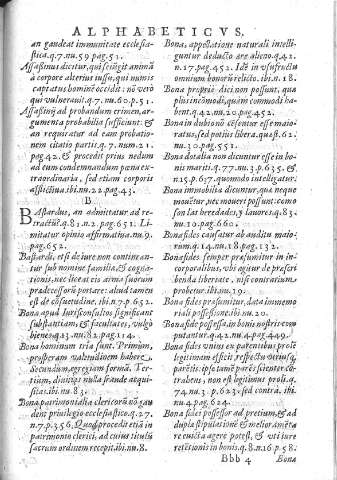 ALPHABETICVS.
an gaudeat immunitate ecclesia-
stica.q.7.nu.59.pag.52.
Assassinus dicitur, qui scingit animũ
à corpore alterius iussu, qui nimis
captatus homine occidit: nõ verò
qui vulnerauit.q.7.nu.60.p.51.
Assassinij ad probandum crimen, ar-
gumenta probabilia sufficiunt: &
an requiratur ad eam probatio-
nem citatio partis.q.7.num.21.
pag.42. & procedit prius nedum
ad eum condemnandum pœna ex-
traordinaria, sed etiam corporis
afflictiua.ibi.nu.22.pag.43.
B
Bastardus, an admittatur ad re-
tractũ.q.81.n.2.pag.651. Li-
mitatur opinio affirmatina.nu.9.
pag.652.
Bastardi, etsi de iure non continean-
tur sub nomine familiæ, & cogna-
tionis, nec liceat eis arma suorum
prædecessorũ portare: aliud tamen
est de cõsuetudine. ibi.n.7.p.652.
Bona apud Iurisconsultos significant
substantiam, & facultates, vulgò
bienes.q.13.nu.82.pag.114.
Bona hominum tria sunt. Primum,
prosperam valitudinem habere.
Secundum, egregiam formã. Ter-
tium, diuitijs nulla fraude acqui-
sitis.ibi.nu.83.
Bona patrimonialia clericorũ nõ gau-
dent priuilegio ecclesiastico.q.27.
n.7.p.356. Quod procedit etiã in
patrimonio clerici, ad cuius titulũ
sacrum ordinem recepit.ibi.nu.8.
Bona, appellatione naturali intelli-
guntur deducto ære alieno.q.42.
n.17.pag.452. Idẽ in vsufructu
omnium bonorũ relicto.ibi.n.18.
Bona propriè dici non possunt, qua
plus incõmodi, quàm commodi ha-
bent.q.42.nu.20.pag.452.
Bona in dubio nõ censentur esse maio-
ratus, sed potius libera.quæst.62.
nu.30.pag.551.
Bona dotalia non dicuntur esse in bo-
nis mariti.q.77.nu.3.p.635. &
n.15.p.637.quomodo intelligatur.
Bona immobilia dicuntur, quæ neque
mouentur, nec moueri possunt: como
son las heredades, y lauores.q.83.
nu.10.pag.660.
Bona causatur ab auditu maio-
rum.q.14.nu.18.pag.132.
Bona fides semper præsumitur in in-
corporalibus, vbi agitur de præscri-
benda libertate, nisi contrarium
probetur.ibi.nu.19.
Bona fides præsumitur, data immemo-
riali possessione.ibi.nu.20.
Bona fide possessa, in bonis nostris com-
putantur.q.42.nu.4.pag.449.
Bona fides vnius ex parentibus prolẽ
legitimam afficit, respectu vtriusq;
parẽtis: ipso tamẽ parẽte scienter cõ-
trahens, non est legitimus proli.q.
74.nu.3.p.623.sed contrà.ibi.
nu.4.pag.624.
Bona fidei possessor ad pretium, & ad
dupla stipulatione & melioramẽta
re euicta agere potest, & vti iure
retẽtionis in bonis.q.8.n.16.p.58.
Bbb 4 Bona